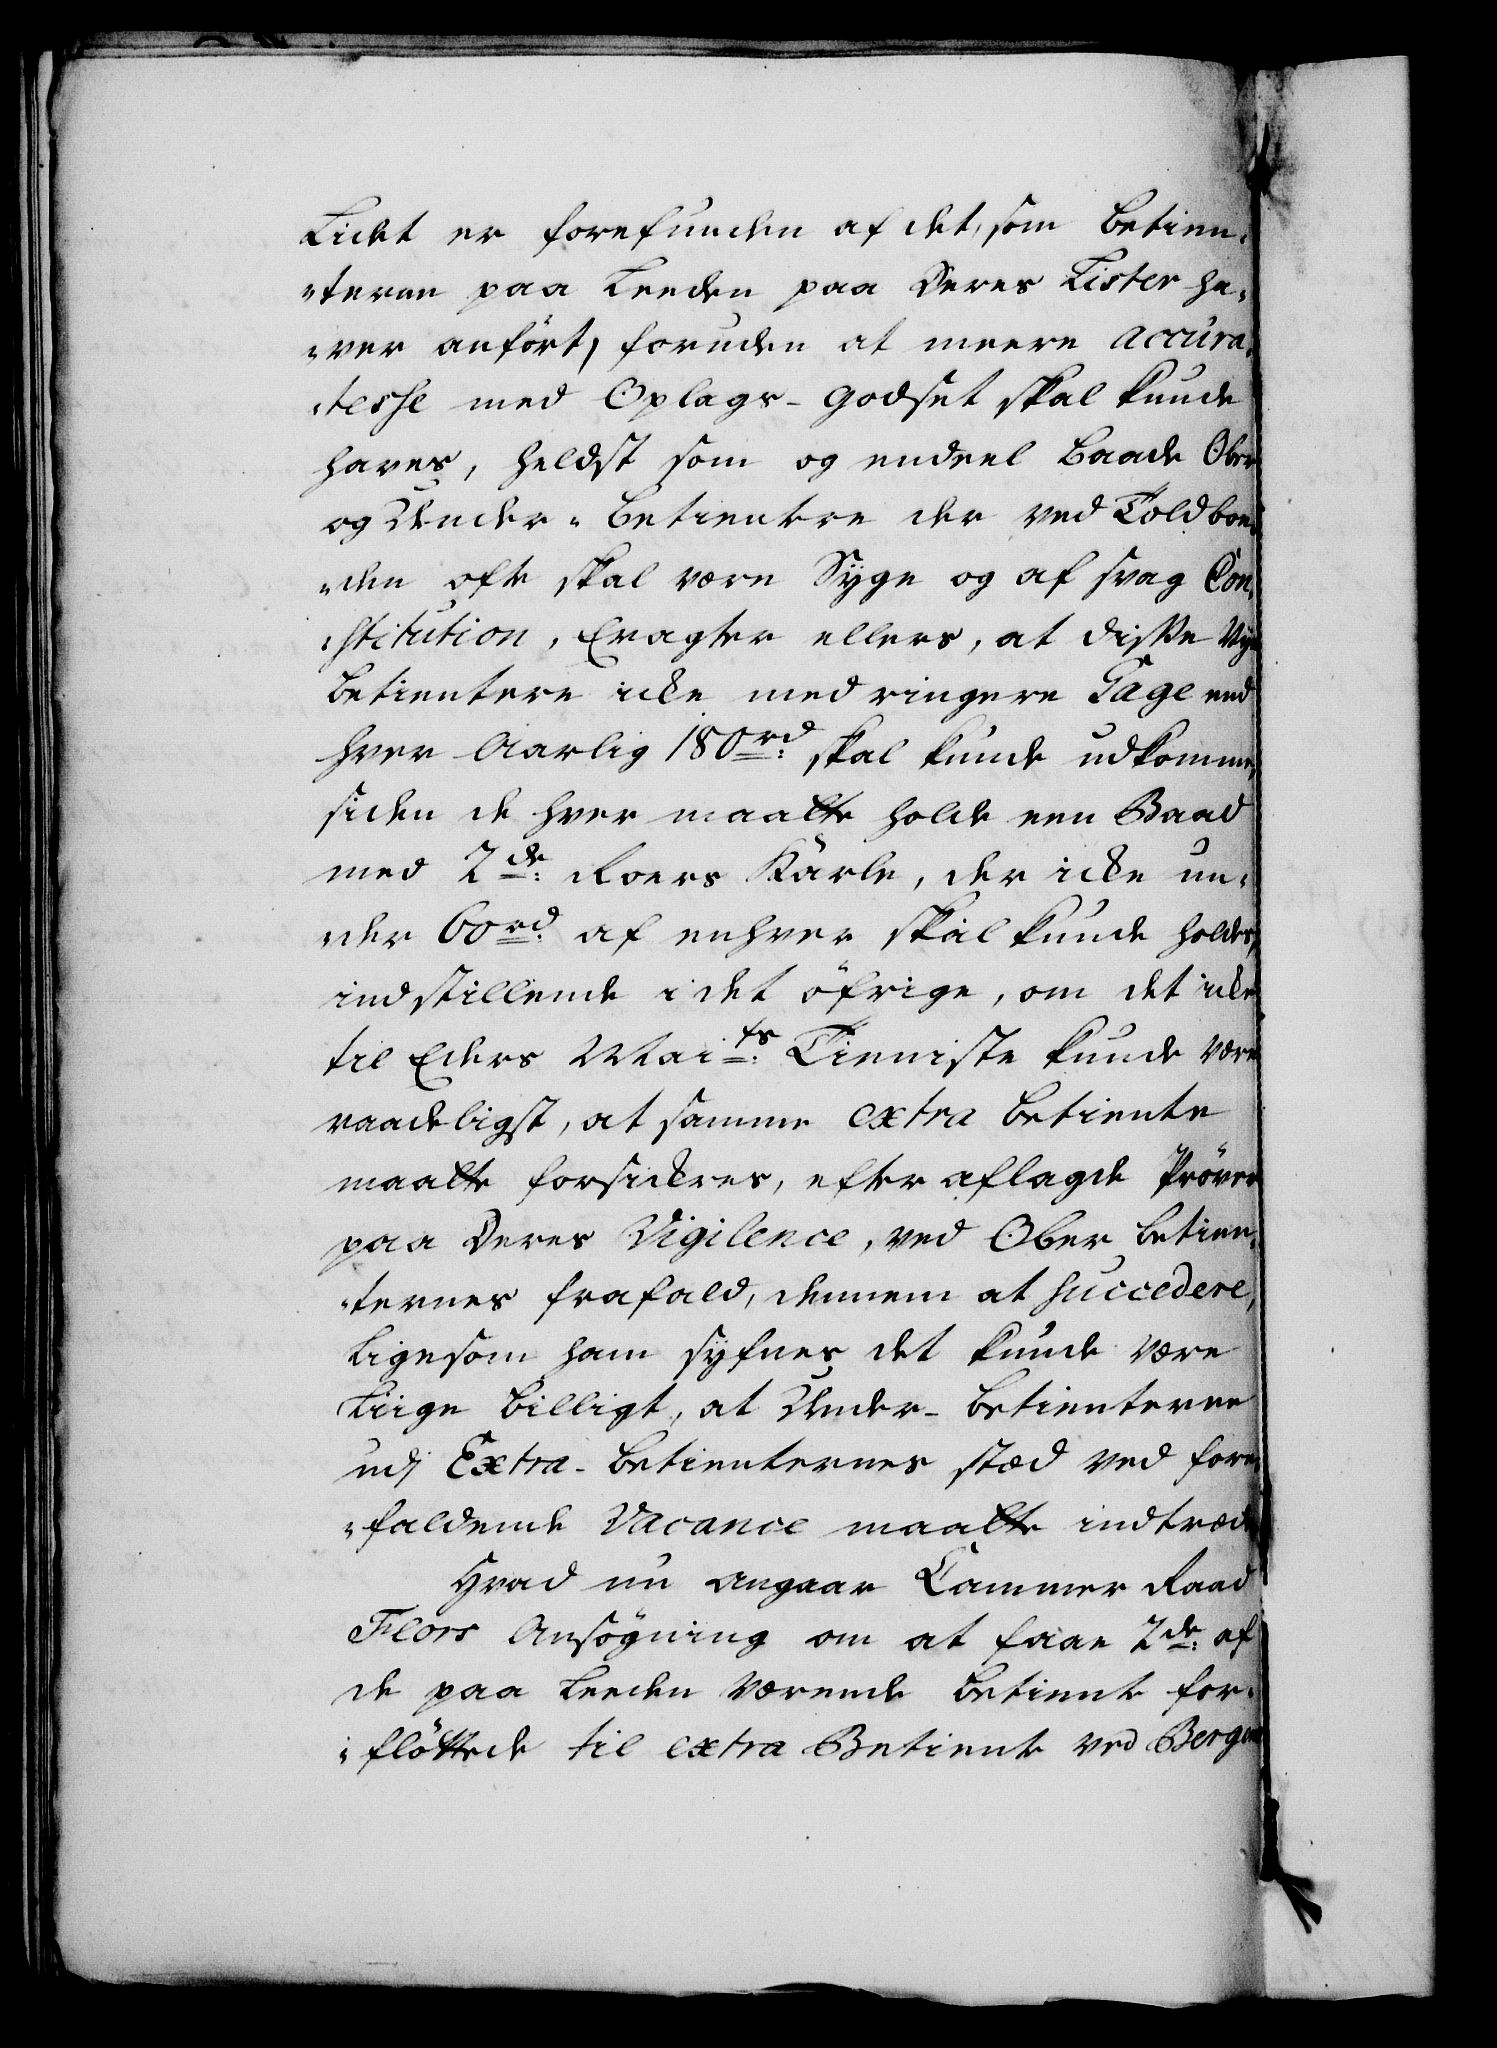 Lidet er forefunden af det, som betien-
-terne paa Leeden paa Deres Lister ha-
-ver anført, foruden at meere accura-
-tesse med Oplags-Godset skal kunde
haves, heldst som og endeel baade Ober
og Under-betientere der ved Toldboe-
-den ofte skal være Syge og af svag Con-
-stitution, Eragter ellers, at diske Nye
betientere icke med ringere Gage end
hver Aarlig 180 rd: skal kunde udkomme,
siden de hver maatte holde een Baad
med 2de: Roers Kårle, der icke un-
-der 60 rd: af enhver skal kunde holdes,
indstillende i det øfrige, om det icke
til Eders Maits: Tieniste kunde være
raadeligst, at samme extra betiente
maatte forsickres, efter aflagde Prøver
paa Deres Vigilence, ved Ober betien-
-ternes frafald, dennem at succedere,
ligesom ham syfnes det kunde være
liige billigt, at Under-betienterne
udj Extra-betienternes stæd ved fore-
-faldende Vacance maatte indtræde
Hvad nu angaar Cammer Raad
Flors Ansøgning om at faae 2de: af
de paa Leeden værende betiente for-
-fløttede til extra Betiente ved Bergen